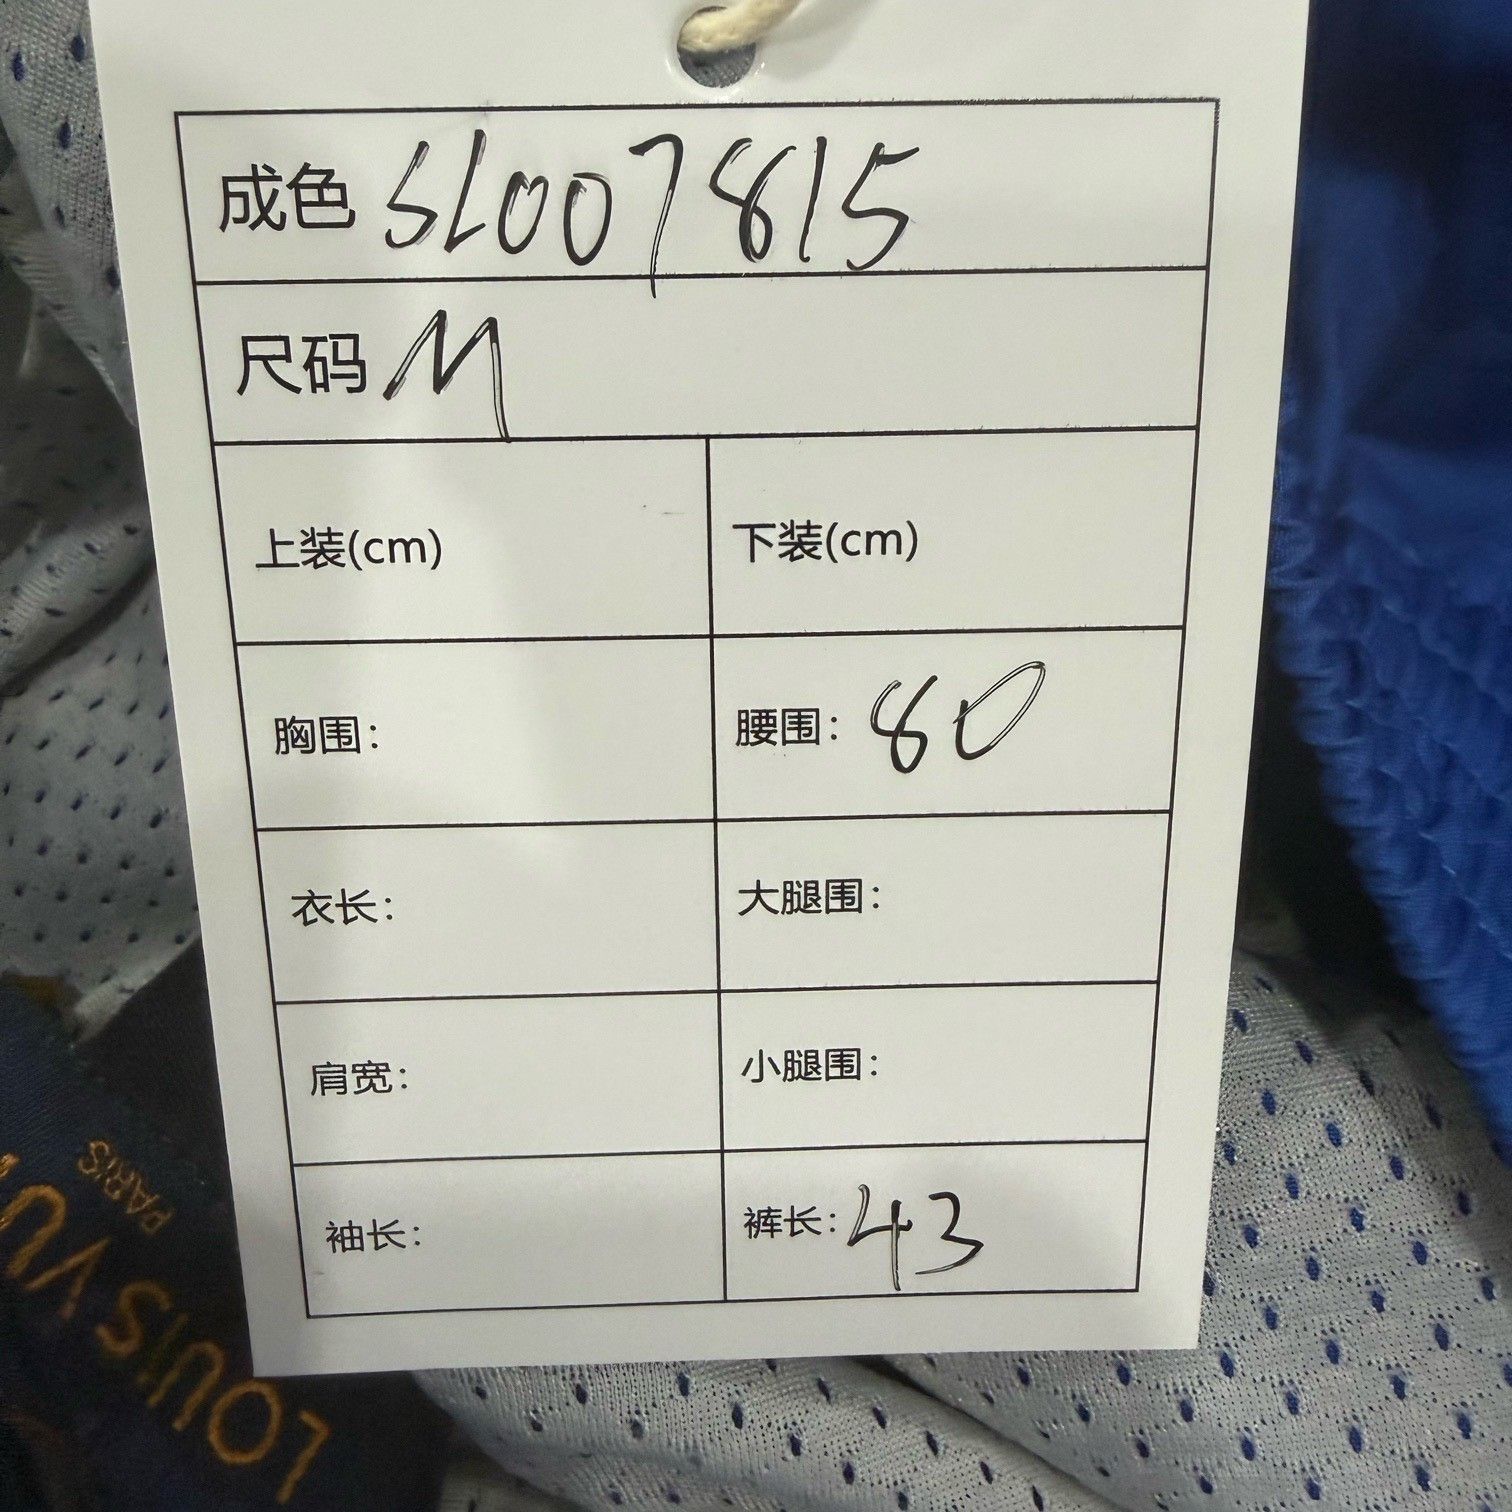 成色 SL007815
尺码 M
上装(cm) 下装(cm)
胸围: 腰围: 80
衣长: 大腿围:
肩宽: 小腿围:
袖长: 裤长: 43
LOUIS VU
PARIS